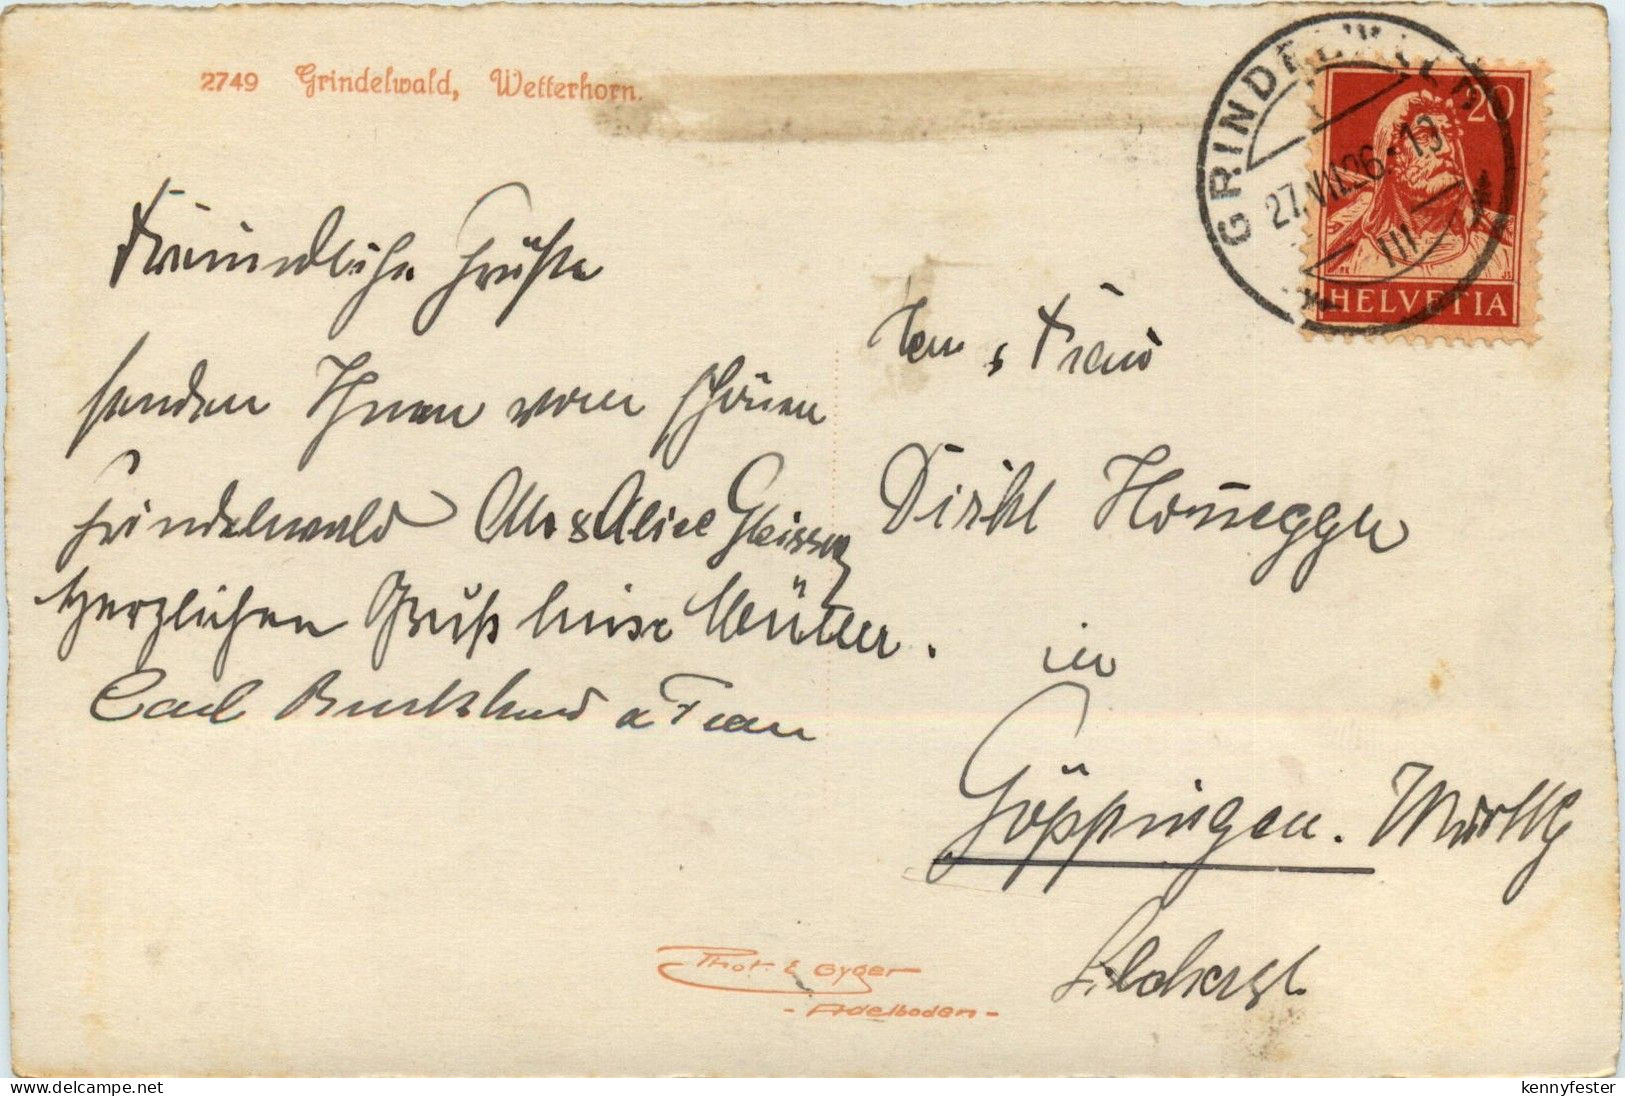 2749 Grindelwald, Wetterhorn.
GRINDELWALD
27.VII.26.-19
III
20
HELVETIA
Freundliche Grüße
senden Ihnen vom schönen
Grindelwald & Alice
Herzlichen Gruß Luise Müller.
Carl Burkhard u Frau
Herr & Frau
Honegger
in
Göppingen. Württbg
Phot. E Gyger
- Adelboden -
kennyfester